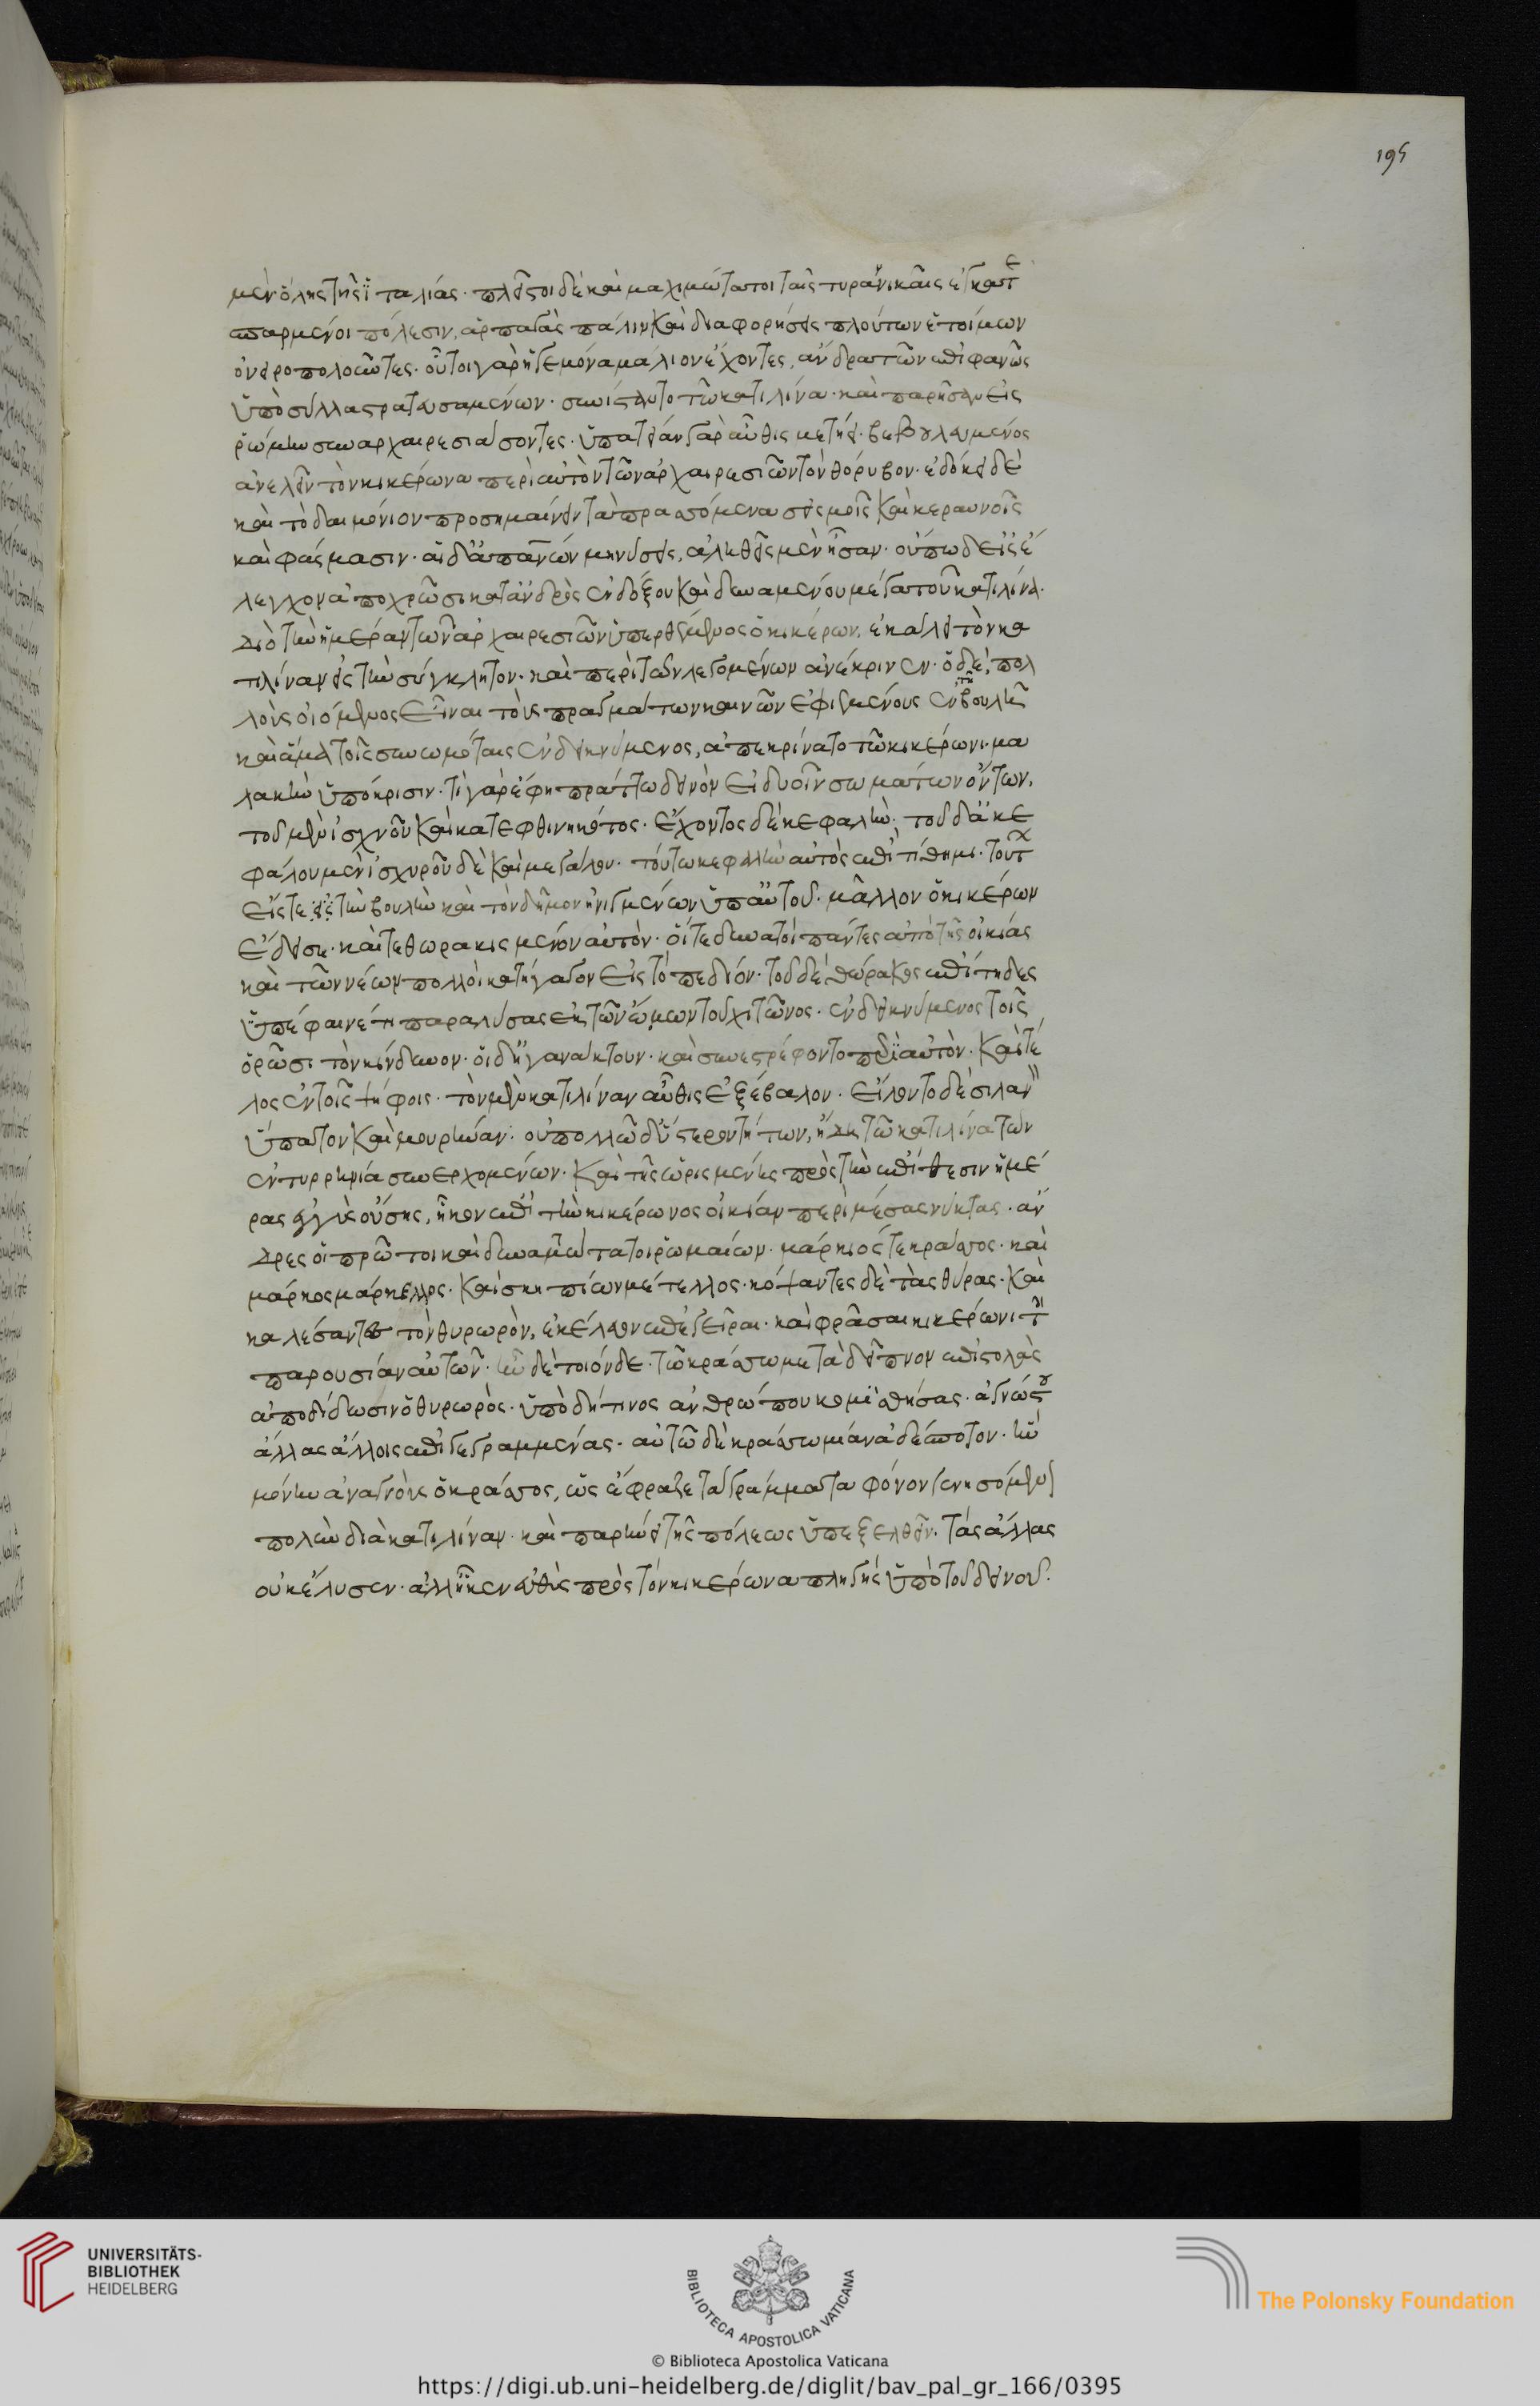 195
μὲν ὅλης τῆς ἰταλίας· πλεῖστοι δὲ καὶ μαχιμώτατοι ταῖς τυρανικαῖς ἐγκατε
σπαρμένοι πόλεσιν, ἁρπαγὰς πάλιν καὶ διαφορήσεις πλούτων ἑτοίμων
ὀνειροπολοῦντες· οὗτοι γὰρ ἡγεμόνα μάλιον ἔχοντες, ἄνδρα τῶν ἐπιφανῶς
ὑπὸ σύλλα στρατευσαμένων· συνίσταντο τῶ κατιλίνα· καὶ παρῆσαν εἰς
ῥώμην συναρχαιρεσιάσοντες· ὑπατείαν γὰρ αὖθις μετήει· βεβουλευμένος
ἀνελεῖν τὸν κικέρωνα περὶ αὐτὸν τῶν ἀρχαιρεσιῶν τὸν θόρυβον· ἐδόκει δὲ
καὶ τὸ δαιμόνιον προσημαίνειν τὰ πρασσόμενα σεισμοῖς καὶ κεραυνοῖς
καὶ φάσμασιν· αἱ δ' ἀπ' ἀνθρώπων μηνύσεις, ἀληθεῖς μὲν ἦσαν· οὔπω δ' εἰς ἔ
λεγχον ἀποχρῶσι κατ' ἀνδρὸς ἐνδόξου καὶ δυναμένου μέγα τοῦ κατιλίνα·
διὸ τὴν ἡμέραν τῶν ἀρχαιρεσιῶν ὑπερθέμενος ὁ κικέρων, ἐκάλει τὸν κα
τιλίναν εἰς τὴν σύγκλητον· καὶ περὶ τῶν λεγομένων ἀνέκρινεν· ὁ δὲ, πολ
λοὺς οἰόμενος εἶναι τοὺς πραγμάτων καινῶν ἐφιεμένους ἐν τῆ βουλῆ
καὶ ἅμα τοῖς συνωμόταις ἐνδεικνύμενος, ἀπεκρίνατο τῶ κικέρωνι μα
λακὴν ὑπόκρισιν· τί γὰρ ἔφη πράττω δεινὸν εἰ δυοῖν σωμάτων ὄντων,
τοῦ μὲν ἰσχνοῦ καὶ κατεφθινηκότος· ἔχοντος δὲ κεφαλὴν· τοῦ δ' ἀκε
φάλου μὲν ἰσχυροῦ δὲ καὶ μεγάλου· τούτω κεφαλὴν αὐτὸς ἐπιτίθημι· τούτων
εἴς τε τὴν βουλὴν καὶ τὸν δῆμον ἠνιγμένων ὑπ' αὐτοῦ· μᾶλλον ὁ κικέρων
ἔδεισε· καὶ τεθωρακισμένον αὐτὸν· οἵ τε δυνατοὶ πάντες ἀπὸ τῆς οἰκίας
καὶ τῶν νέων πολλοὶ κατήγαγον εἰς τὸ πεδίον· τοῦ δὲ θώρακος ἐπίτηδες
ὑπέφαινέ τι παραλύσας ἐκ τῶν ὤμων τοῦ χιτῶνος· ἐνδεικνύμενος τοῖς
ὁρῶσι τὸν κίνδυνον· οἱ δ' ἠγανάκτουν· καὶ συνεστρέφοντο περὶ αὐτὸν· καὶ τέ
λος ἐν τοῖς ψήφοις· τὸν μὲν κατιλίναν αὖθις ἐξέβαλον· εἵλοντο δὲ σιλανὸν
ὕπατον καὶ μουρήναν· οὐ πολλῶ δ' ὕστερον τούτων, ἤδη τῶ κατιλίνα τῶν
ἐν τυρρηνία συνερχομένων· καὶ τῆς ὡρισμένης πρὸς τὴν ἐπίθεσιν ἡμέ
ρας ἐγγὺς οὔσης, ἧκον ἐπὶ τὴν κικέρωνος οἰκίαν περὶ μέσας νύκτας· ἄν
δρες οἱ πρῶτοι καὶ δυνατώτατοι ῥωμαίων· μάρκιός τε κράσσος· καὶ
μάρκος μάρκελλος· καὶ σκηπίων μέτελλος· κόψαντες δὲ τὰς θύρας· καὶ
καλέσαντες τὸν θυρωρὸν, ἐκέλευον ἐπεγεῖραι· καὶ φρᾶσαι κικέρωνι τὴν
παρουσίαν αὐτῶν· ἦν δὲ τοιόνδε· τῶ κράσσω μετὰ δεῖπνον ἐπιστολὰς
ἀποδίδωσιν ὁ θυρωρὸς· ὑπὸ δή τινος ἀνθρώπου κομισθείσας· ἀγνῶτος
ἄλλας ἄλλοις ἐπιγεγραμμένας· αὐτῶ δὲ κράσσω μίαν ἀδέσποτον· ἣν
μόνην ἀναγνοὺς ὁ κράσσος, ὡς ἔφραζε τὰ γράμματα φόνον γενησόμενον
πολὺν διὰ κατιλίναν· καὶ παρήνει τῆς πόλεως ὑπεξελθεῖν· τὰς ἄλλας
οὐκ ἔλυσεν· ἀλλ' ἧκεν εὐθὺς πρὸς τὸν κικέρωνα πληγεὶς ὑπὸ τοῦ δεινοῦ·
UNIVERSITÄTS-
BIBLIOTHEK
HEIDELBERG
BIBLIOTECA APOSTOLICA VATICANA
The Polonsky Foundation
© Biblioteca Apostolica Vaticana
https://digi.ub.uni-heidelberg.de/diglit/bav_pal_gr_166/0395